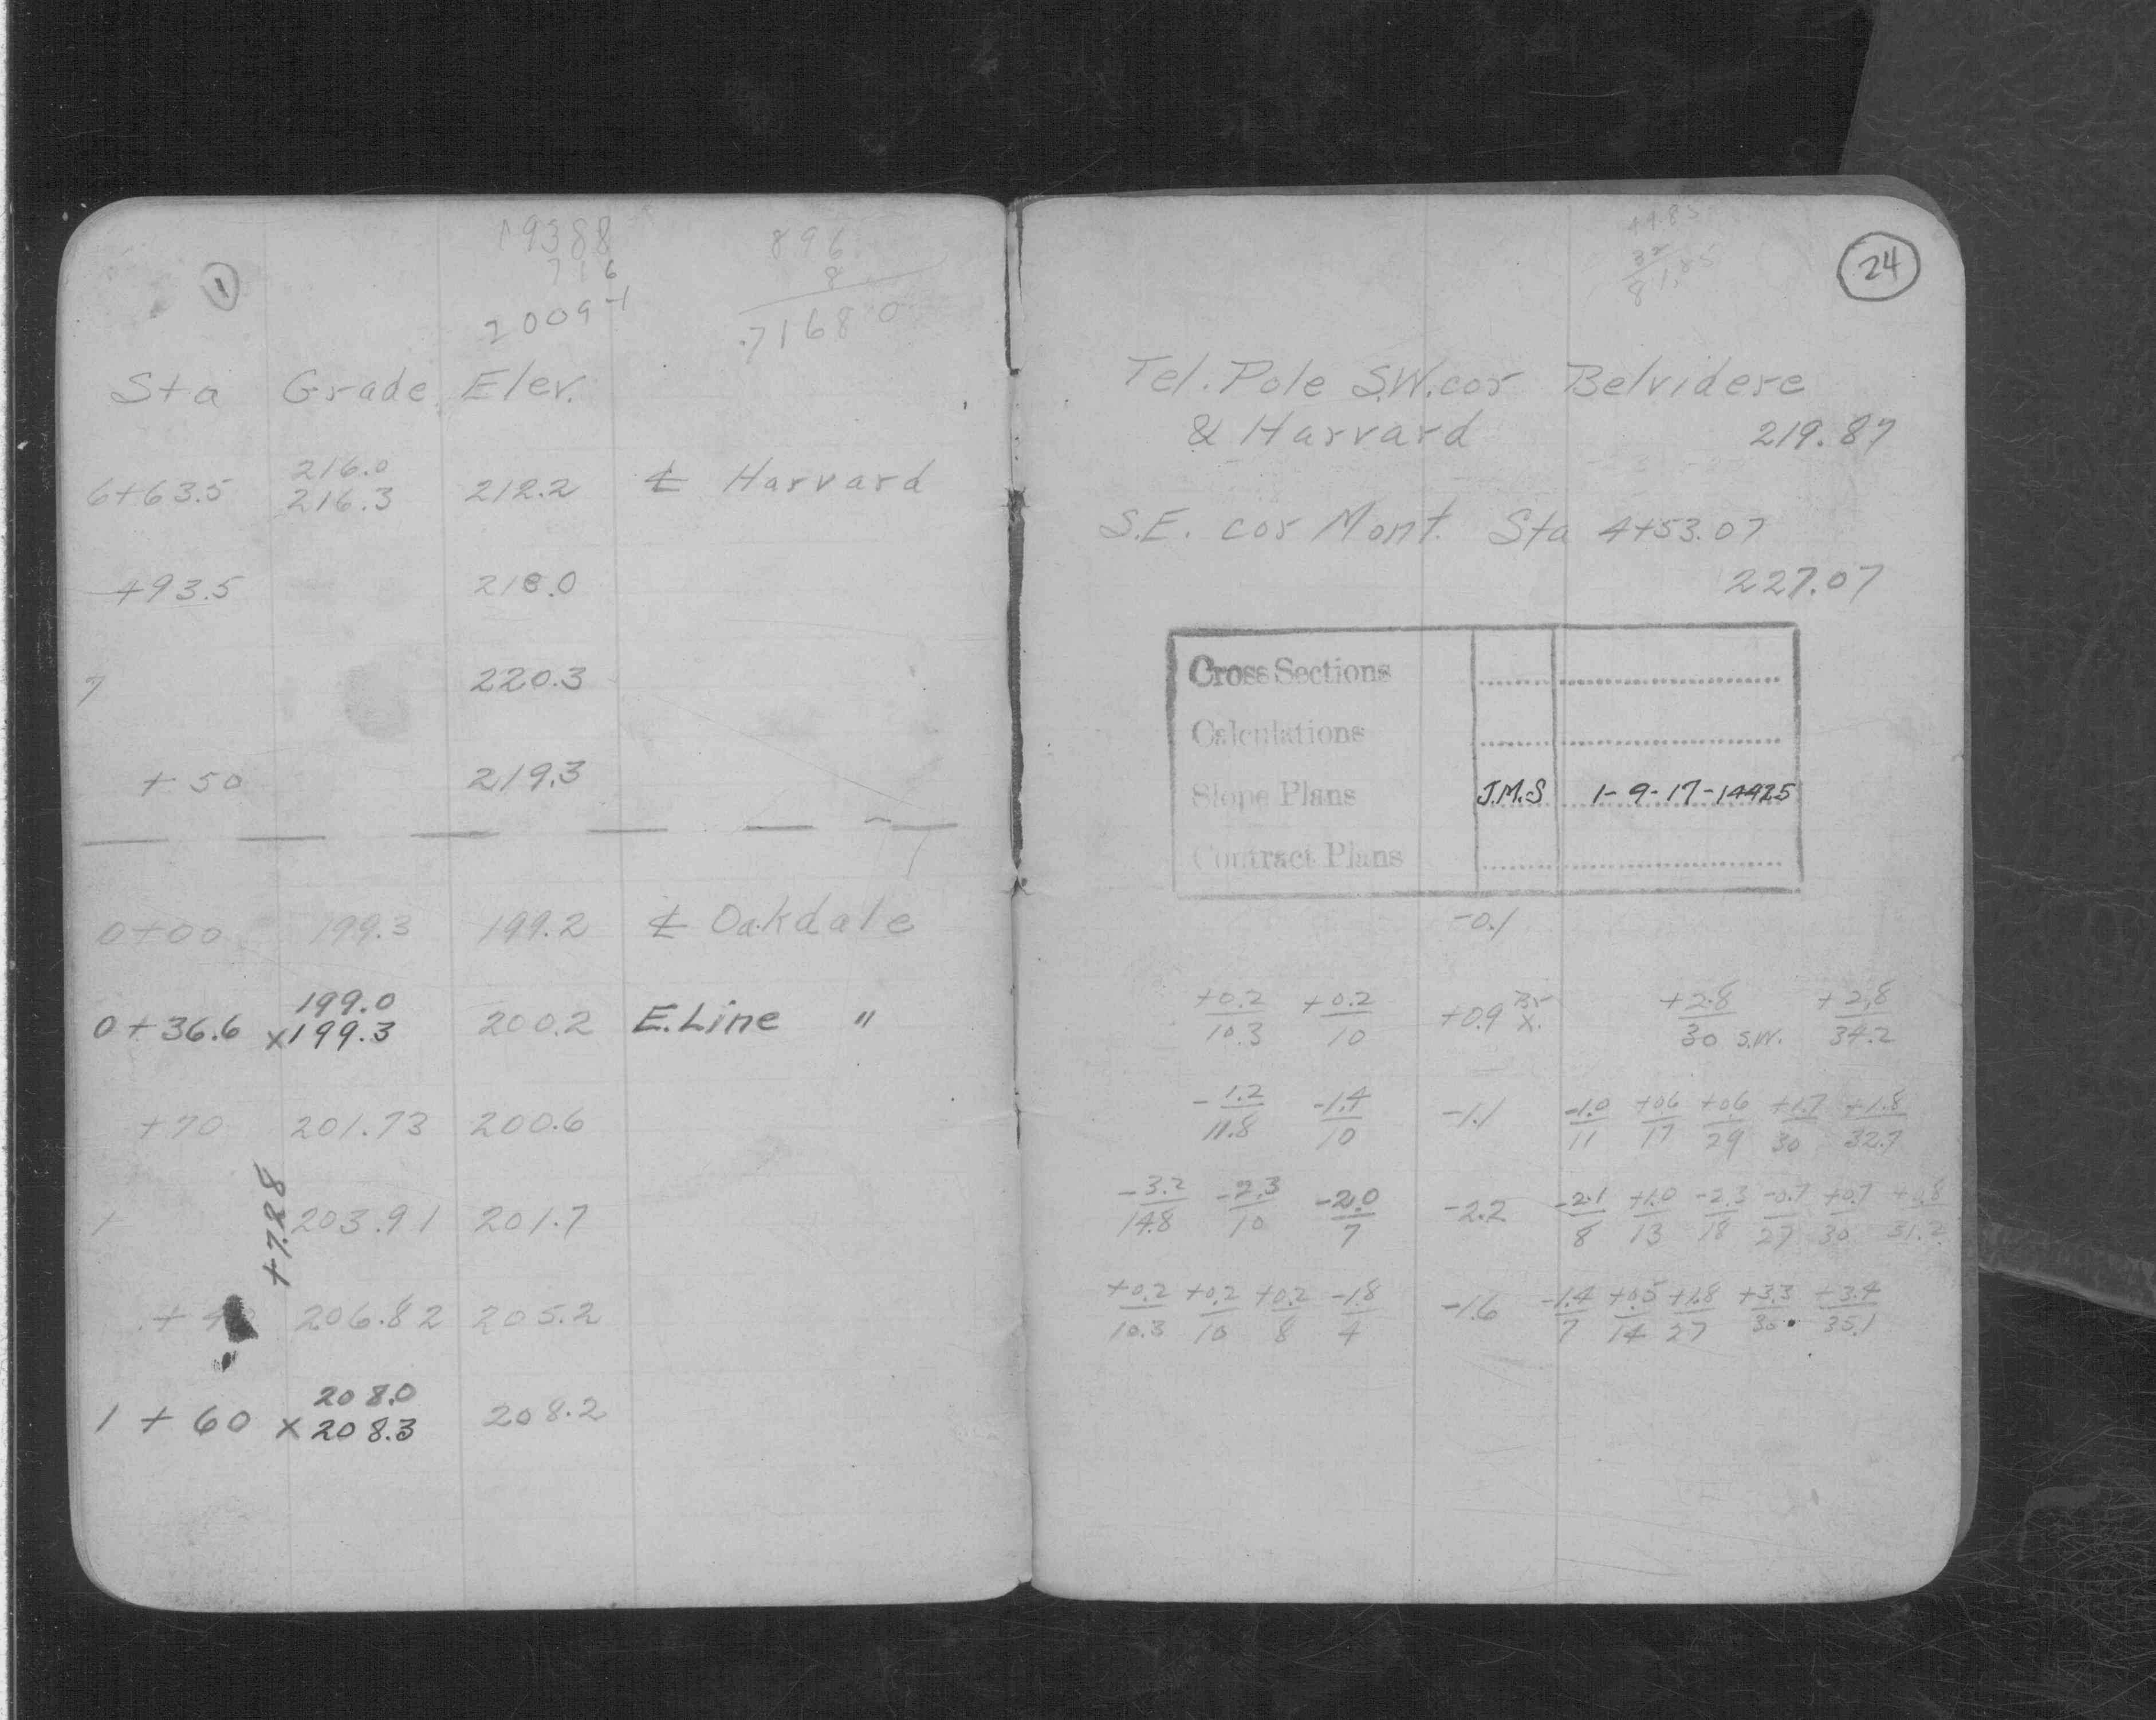 1
19388
716
896
8
.71680
Sta Grade Elev.
216.0
6+63.5 216.3 212.2 ℄ Harvard
+93.5 218.0
7 220.3
+50 219.3
0+00 199.3 199.2 ℄ Oakdale
199.0
0+36.6 x199.3 200.2 E.Line "
+70 201.73 200.6
+7.28
1 203.91 201.7
206.82 205.2
208.0
1+60 x208.3 208.2
24
Tel. Pole S.W. cor Belvidere
& Harvard 219.87
S.E. cor Mont. Sta 4+53.07
227.07
Cross Sections
Calculations
Slope Plans J.M.S 1-9-17-14425
Contract Plans
-0.1
+0.2 +0.2 +0.9 x. +2.8 +2.8
10.3 10 30 S.W. 34.2
-1.2 -1.4 -1.1 -1.0 +0.6 +0.6 +1.7 +1.8
11.8 10 11 17 29 30 32.7
-3.2 -2.3 -2.0 -2.2 -2.1 +1.0 -2.3 -0.7 +0.7 +0.8
14.8 10 7 8 13 18 27 30 31.2
+0.2 +0.2 +0.2 -1.8 -1.6 -1.4 +0.5 +1.8 +3.3 +3.4
10.3 10 8 4 7 14 27 30 35.1